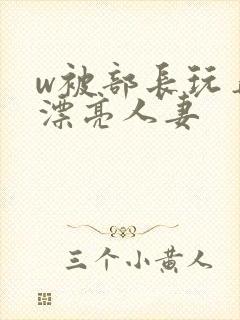 w被部長玩
漂亮人妻
三个小黄人